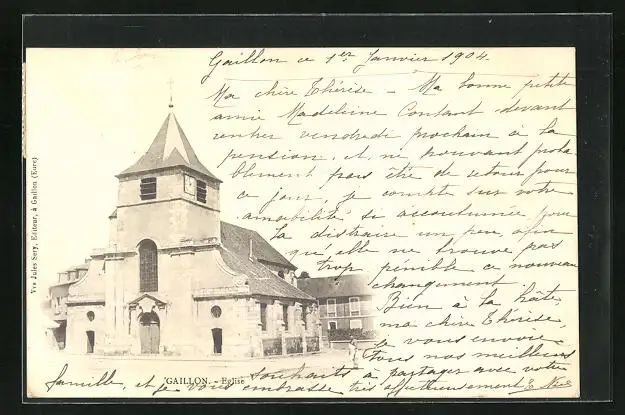 Gaillon ce 1er Janvier 1904.
Ma chère Thérèse - Ma bonne petite
amie Madeleine Contant devant
rentrer vendredi prochain à la
pension, et, ne pouvant proba
blement pas être de retour pour
ce jour, je compte sur votre
amabilité si accoutumée pour
la distraire un peu, afin
qu'elle ne trouve pas
trop pénible ce nouveau
changement.
Bien à la hâte,
ma chère Thérèse,
je vous envoie
tous nos meilleurs
souhaits à partager avec votre
famille, et je vous embrasse très affectueusement
GAILLON. - Eglise
Vve Jules Sery, Editeur, à Gaillon (Eure)